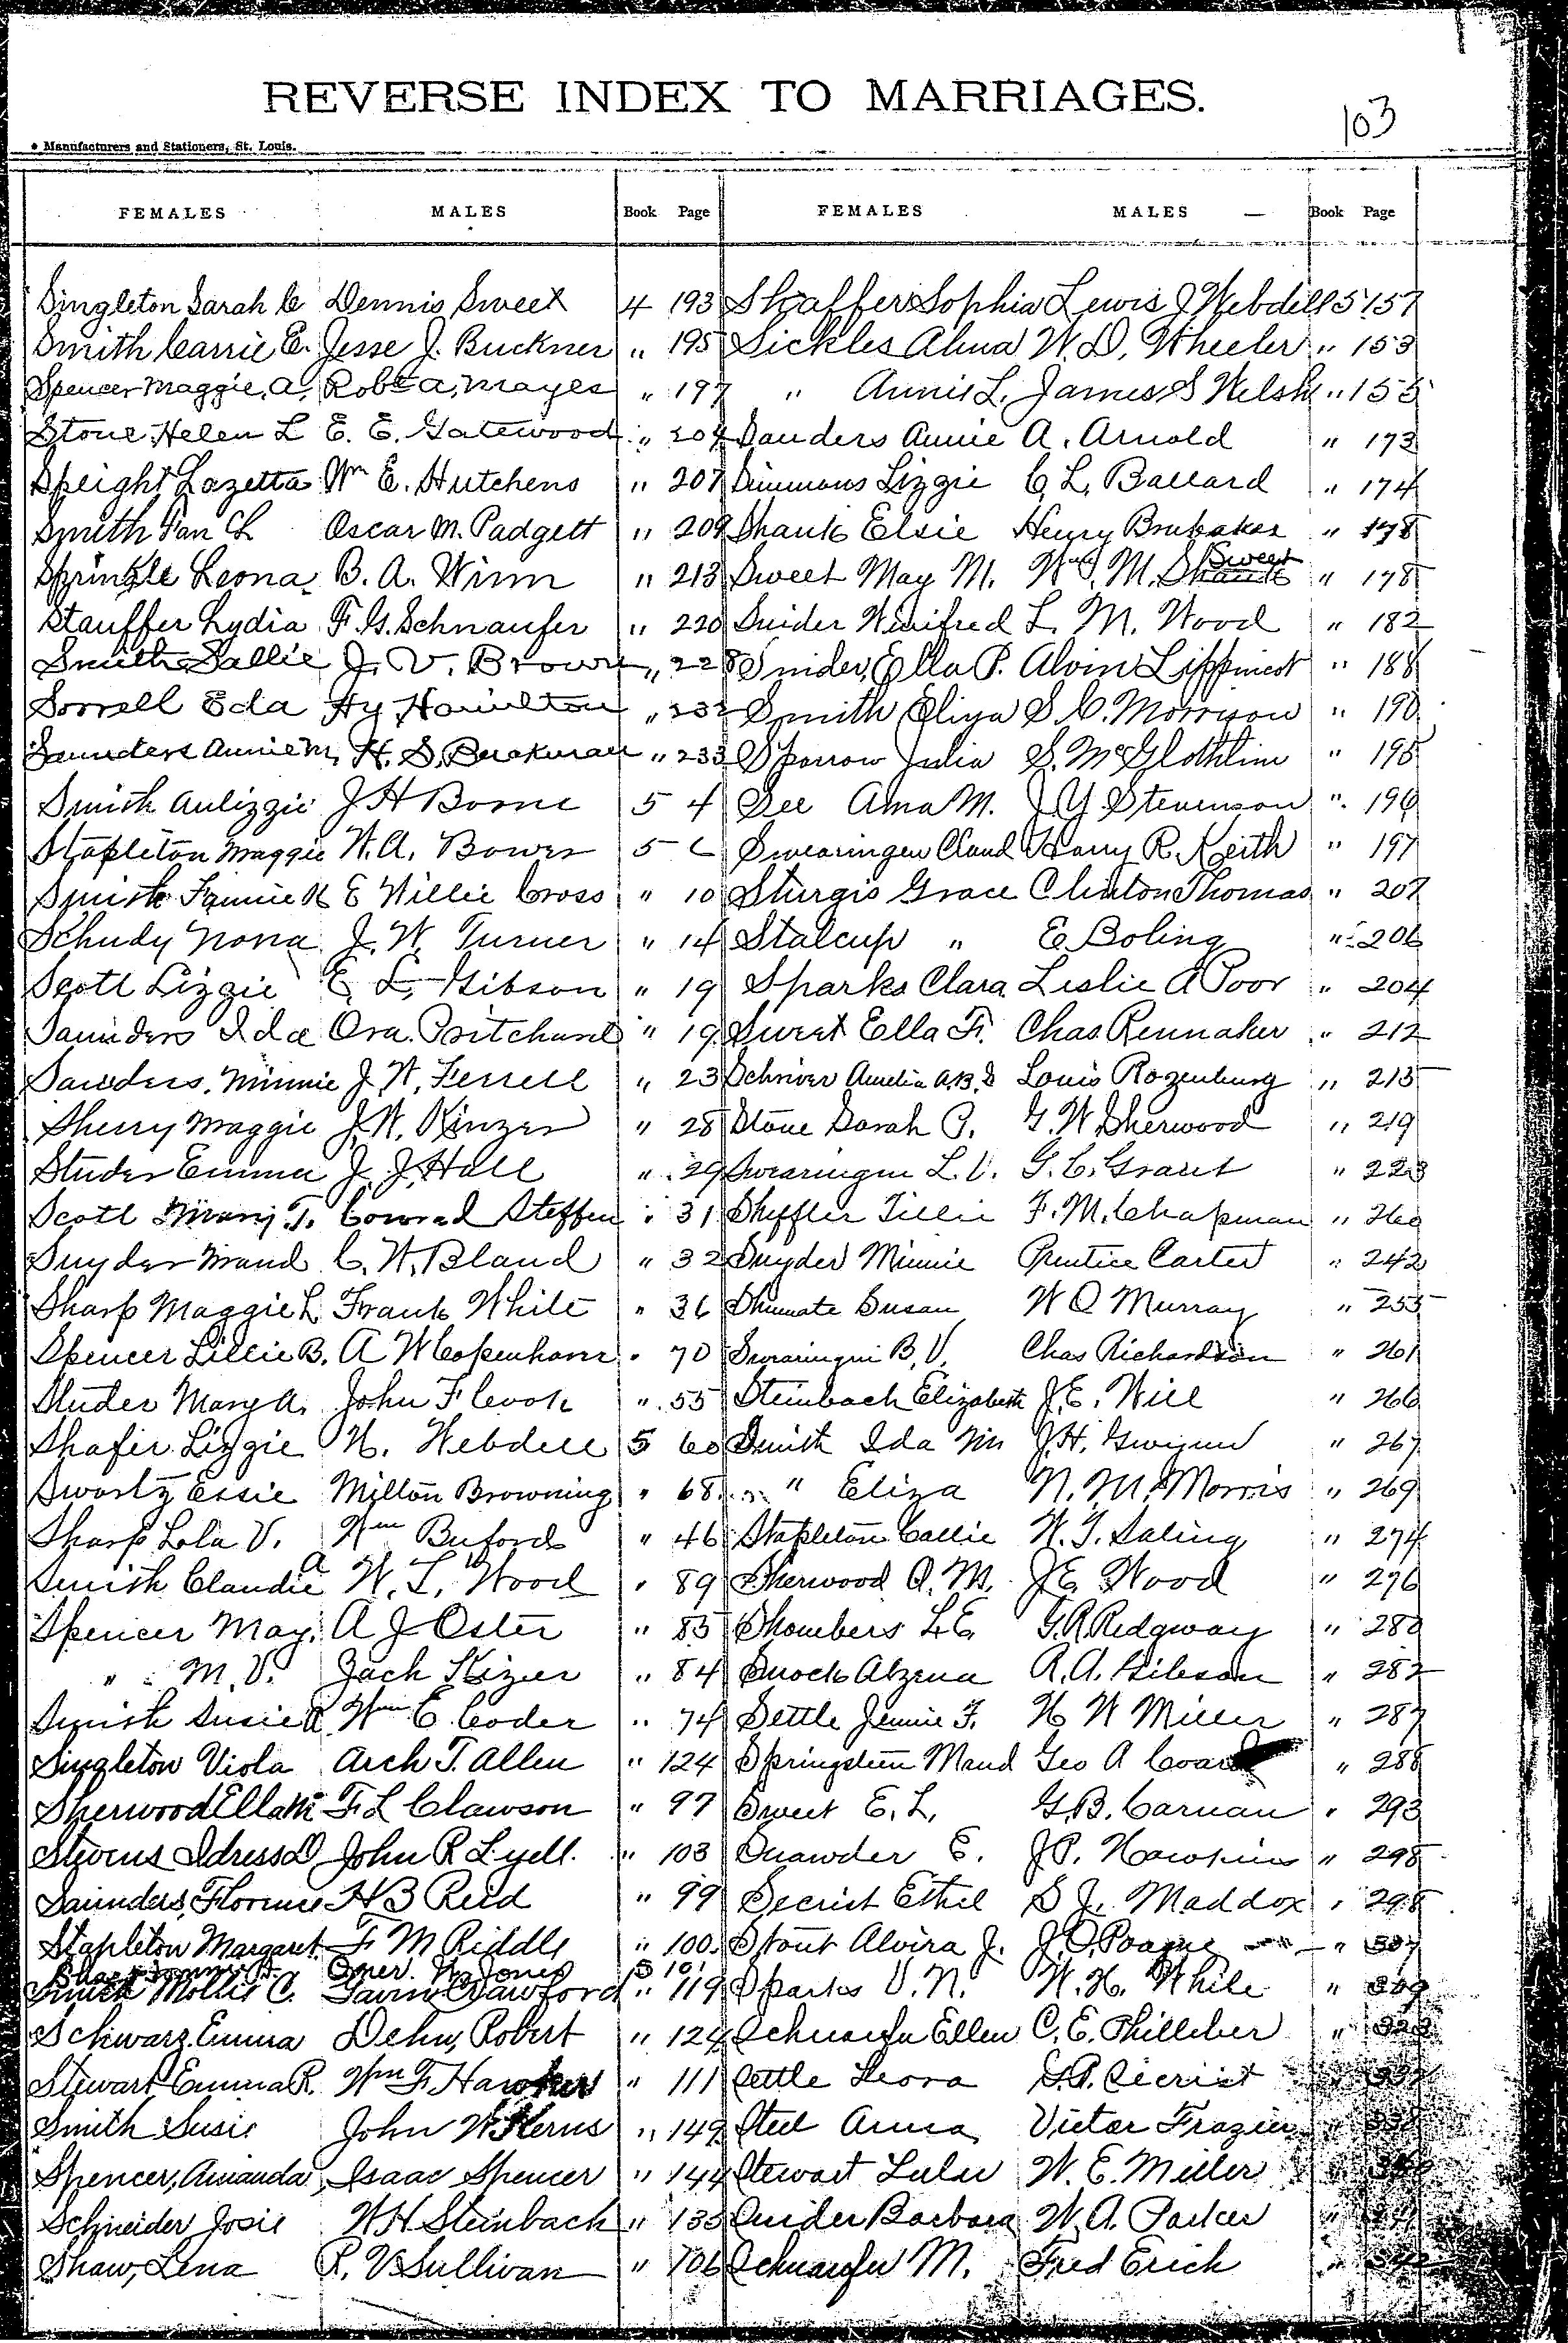 REVERSE INDEX TO MARRIAGES.
103
Manufacturers and Stationers, St. Louis.
FEMALES MALES Book Page FEMALES MALES Book Page
Singleton Sarah C Dennis Sweet 4 193 Shaffer Sophia Lewis J Webdell 5 157
Smith Carrie E. Jesse J. Buckner " 195 Sickles Alma W. D. Wheeler " 153
Spencer Maggie, A, Robt A, Mayes " 197 " Annie L. James S Welsh " 155
Stone Helen L E. E. Gatewood " 204 Sanders Annie A. Arnold " 173
Speight Lazetta Wm E. Hutchens " 207 Simmons Lizzie C. L. Ballard " 174
Smith Fan L Oscar M. Padgett " 209 Shank Elsie Henry Brubaker " 178
Sprinkle Leona B. A. Winn " 213 Sweet May M. Wm. M. Sweet " 178
Stauffer Lydia F. G. Schnaufer " 220 Snider Winifred L. M. Wood " 182
Smith Sallie J. V. Brown " 228 Snider, Ella P. Alvin Lippincot " 188
Sorrell Eda Hy Hamilton " 232 Smith Eliza S. C. Morrison " 190
Saunders Annie M, H. S. Buckman " 233 Sparrow Julia S. McGlothlin " 195
Smith Anlizzie J H Borne 5 4 See Ama M. J. Y. Stevenson " 196
Stapleton Maggie W. A. Bower 5 6 Swearingen Claud Harry R. Keith " 197
Smith Fannie H E Willie Cross " 10 Sturgis Grace Clinton Thomas " 207
Schudy Nora J. W. Turner " 14 Stalcup " E. Boling " 206
Scott Lizzie E. L. Gibson " 19 Sparks Clara Leslie A Poor " 204
Saunders Ida Ora. Pritchard " 19 Sweet Ella F. Chas. Rennaker " 212
Sanders, Minnie J. W. Ferrell " 23 Schriver Amelia A. B. D Louis Rozenburg " 215
Sherry Maggie J. W. Kinzer " 28 Stone Sarah P. G. W. Sherwood " 219
Studer Emma J. J. Hall " 29 Swearingen L. V. G. C. Grant " 223
Scott T. Conrad Steffen " 31 Sheffler Tillie F. M. Chapman " 260
Snyder Maud C. W. Bland " 32 Snyder Minnie Prentice Carter " 242
Sharp Maggie L Frank White " 36 Shumate Susan W O Murray " 255
Spencer Lillie B. A W Copenhaver " 70 Swearingin B. V. Chas Richardson " 261
Studer Mary A. John F Cook " 55 Steinbach Elizabeth J. E. Will " 266
Shafer Lizzie H. Webdell 5 60 Smith Ida M J. H. Gwynn " 267
Swartz Essie Milton Browning " 68 " Eliza N. M. Morris " 269
Sharp Lola V. Wm Buford " 46 Stapleton Callie W. T. Saling " 274
Smith Claudie A W. L. Wood " 89 Sherwood O. M. J. E. Wood " 276
Spencer May. A J Oster " 85 Shombers L. E. G. R. Ridgway " 280
" M. V. Zach Kizer " 84 Snock Alzena R. A. Gibson " 282
Smith Susie R Wm E. Coder " 74 Settle Jennie F. H W Miller " 287
Singleton Viola Arch T. Allen " 124 Springsteen Maud Geo A " 288
Sherwood Ella M F L Clawson " 97 Sweet E. L. G. B. Carnan " 293
Stevens Idress D John R Lyell. " 103 Snawder E. J. P. Hawkins " 298
Saunders, Florence H B Reid " 99 Secrist Ethel S J. Maddox " 298
Stapleton Margaret F M Riddle " 100 Stout Alvira J. J. O. Poague " 307
Omer. N. Jones 5 101
Smith Mollie C. Gavin Crawford " 119 Sparks V. N. W. H. White " 309
Schwarz Emma Dehn, Robert " 124 Schnaufer Ellen C. E. Philliber "
Stewart Emma R. Wm F. Hawker " 111 Settle Leora S. P. Secrist
Smith Susie John W Kerns " 149 Steel Anna Victor Frazier
Spencer, Amanda Isaac Spencer " 144 Stewart Lulu W. E. Miller
Schneider Josie W H Steinbach " 135 Snider Barbara W. A. Parker
Shaw, Lena R. V Sullivan " 106 Schnaufer M. Fred Erich